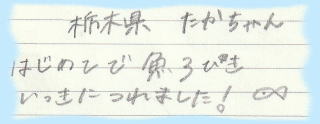 栃木県 たかちゃん
はじめてで 魚3びき
いっきにつれました!